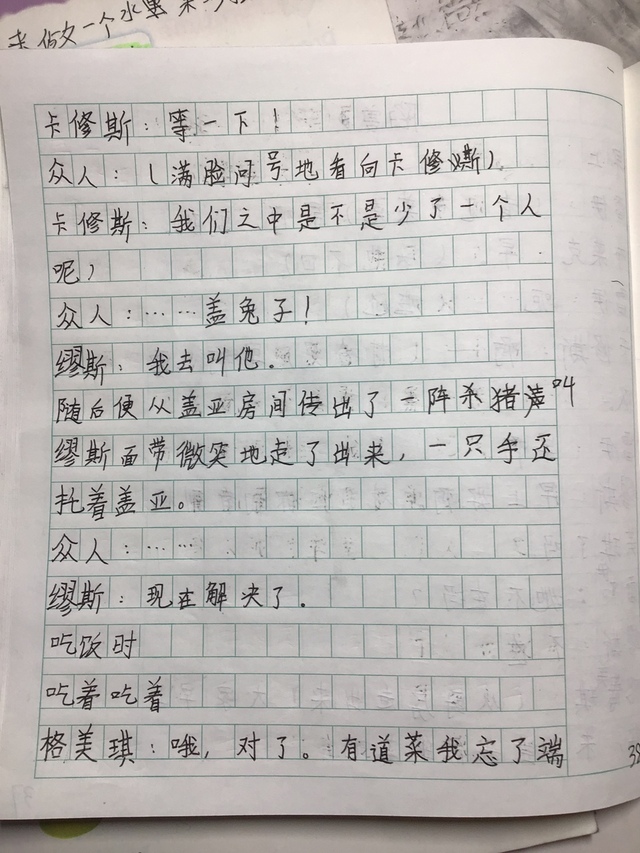 来做一个水果
卡修斯：等一下！
众人：（满脸问号地看向卡修斯）
卡修斯：我们之中是不是少了一个人
呢）
众人：……盖兔子！
缪斯：我去叫他.
随后便从盖亚房间传出了一阵杀猪声叫
缪斯面带微笑地走了出来，一只手还
托着盖亚。
众人：……
缪斯：现在解决了.
吃饭时
吃着吃着
格美琪：哦，对了。有道菜我忘了端